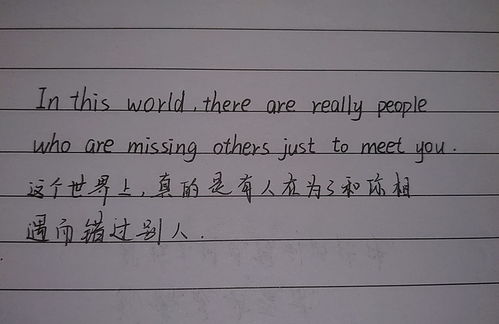 In this world, there are really people
who are missing others just to meet you.
这个世界上,真的是有人在为了和你相
遇而错过别人.